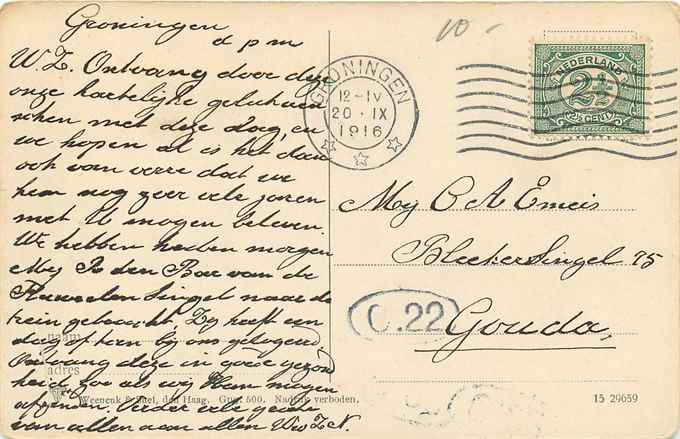 Groningen
d p m
W.Z. Ontvang door deze
onze hartelijke gelukwen
schen met deze dag, en
we hopen al is het dan
ook van verre dat we
hem nog zeer vele jaren
met U mogen beleven.
We hebben heden morgen
Mej de Bae van de
Singel naar de
trein gebracht. Zij heeft een
dag of tien bij ons gelogeerd
Ontvang deze in goede gezond
heid zoo als wij Hem mogen
afzenden. Verder vele groete
van allen aan allen W v Z N.
10 -
GRONINGEN
12-IV
20 · IX
1916
NEDERLAND
2½
2½ CENT
Mej C A Emeis
Bleekersingel 75
C.22
Gouda,
naam
adres
Weenenk & Snel, den Haag. Gr. 500. Nadruk verboden.
15 29059